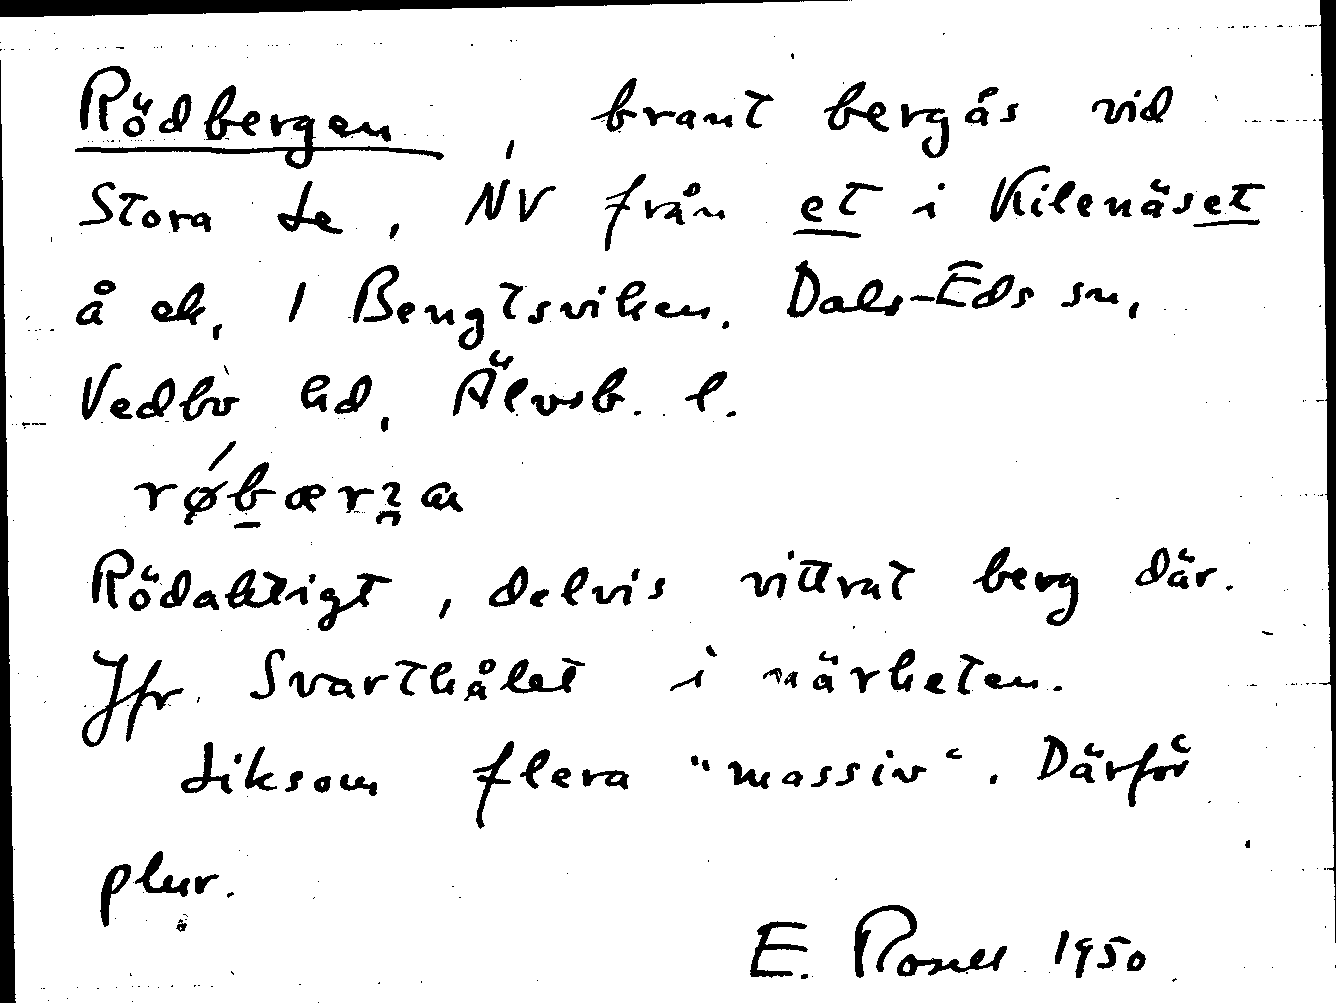 Rödbergen, brant bergås vid
Stora Le, NV från et i Kilenäset
å ek, 1 Bengtsviken. Dals-Eds sn,
Vedbo hd, Älvsb. l.
Rödaktigt, delvis vittrat berg där.
Jfr Svarthålet i närheten.
Liksom flera "massiv". Därför
plur.
E. 1950